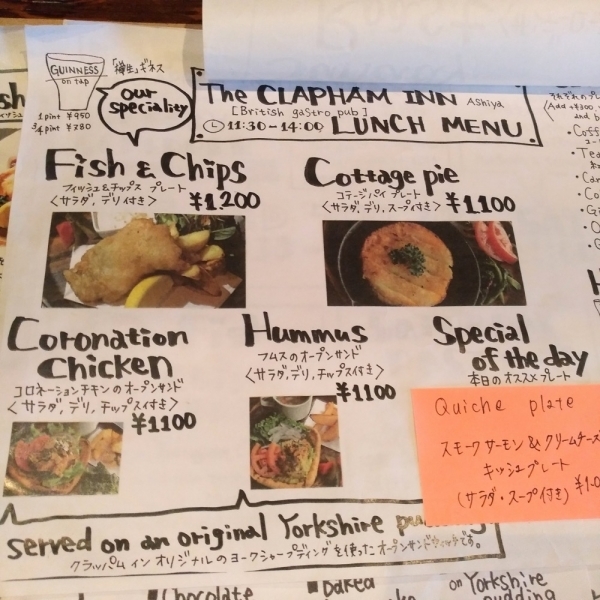 GUINNESS
on tap
「樽生」ギネス
1 pint ¥950
¥380
our
speciality
The CLAPHAM INN Ashiya
[British gastro pub]
11:30-14:00 LUNCH MENU
Fish & Chips
フィッシュ&チップス プレート
<サラダ, デリ付き> ¥1,200
Cottage pie
コテージパイ プレート
<サラダ, デリ, スープ付き> ¥1100
Coronation
Chicken
コロネーションチキンのオープンサンド
<サラダ, デリ, チップス付き>
¥1100
Hummus
フムスのオープンサンド
<サラダ, デリ, チップス付き>
¥1100
Special
of the day
本日のオススメプレート
Quiche plate
スモークサーモン&クリームチーズ
キッシュプレート
(サラダ・スープ付き)
served on an original Yorkshire
クラッパム イン オリジナルのヨークシャープディングを使ったオープンサンドウィッチです。
Chocolate
on Yorkshire
pudding